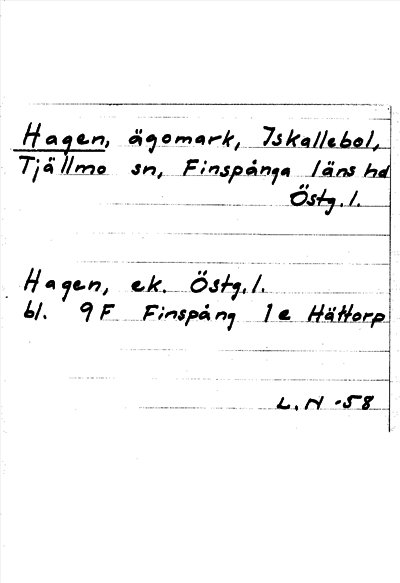 Hagen, ägomark, Iskallebol,
Tjällmo sn, Finspånga läns hd
Östg.l.
Hagen, ek. Östg.l.
bl. 9F Finspång 1e Hättorp
L.N -58